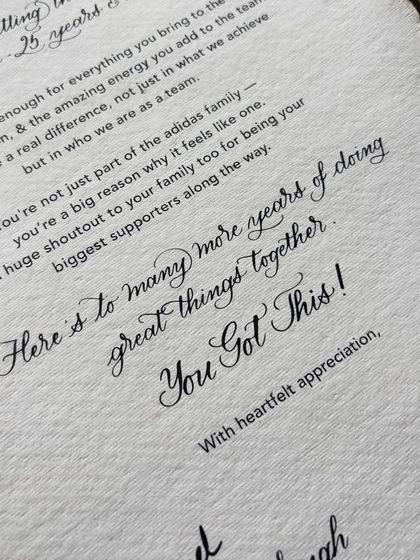 25 years &
enough for everything you bring to the
, & the amazing energy you add to the team
a real difference, not just in what we achieve
but in who we are as a team.
You're not just part of the adidas family —
you're a big reason why it feels like one.
huge shoutout to your family too for being your
biggest supporters along the way.
Here's to many more years of doing
great things together.
You Got This!
With heartfelt appreciation,